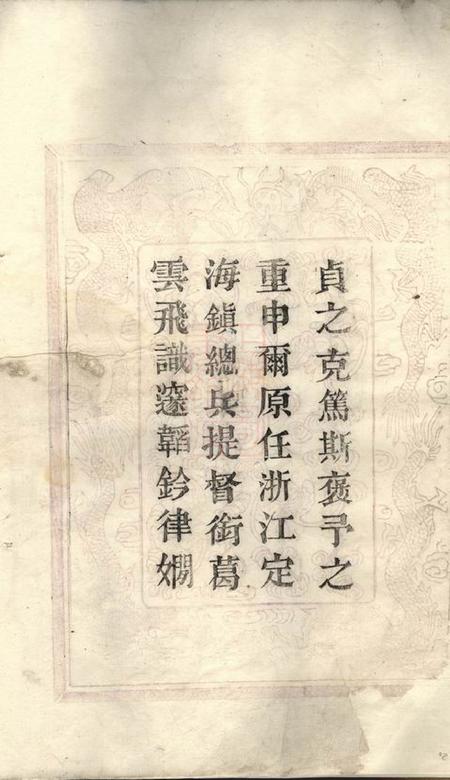 貞之克篤斯褒予之
重申爾原任浙江定
海鎮總兵提督銜葛
雲飛識邃韜鈐律嫺